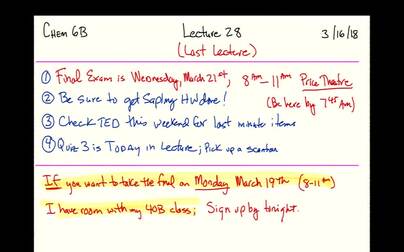 Chem 6B Lecture 28 3/16/18
(Last Lecture)
① Final Exam is Wednesday, March 21st, 8 Am – 11 Am Price Theatre
(Be here by 7 45 Am)
② Be sure to get Sapling HW done!
③ Check TED this weekend for last minute items
④ Quiz 3 is Today in Lecture; Pick up a scantron
If you want to take the final on Monday March 19th (8-11 am)
I have room with my 40B class; Sign up by tonight.